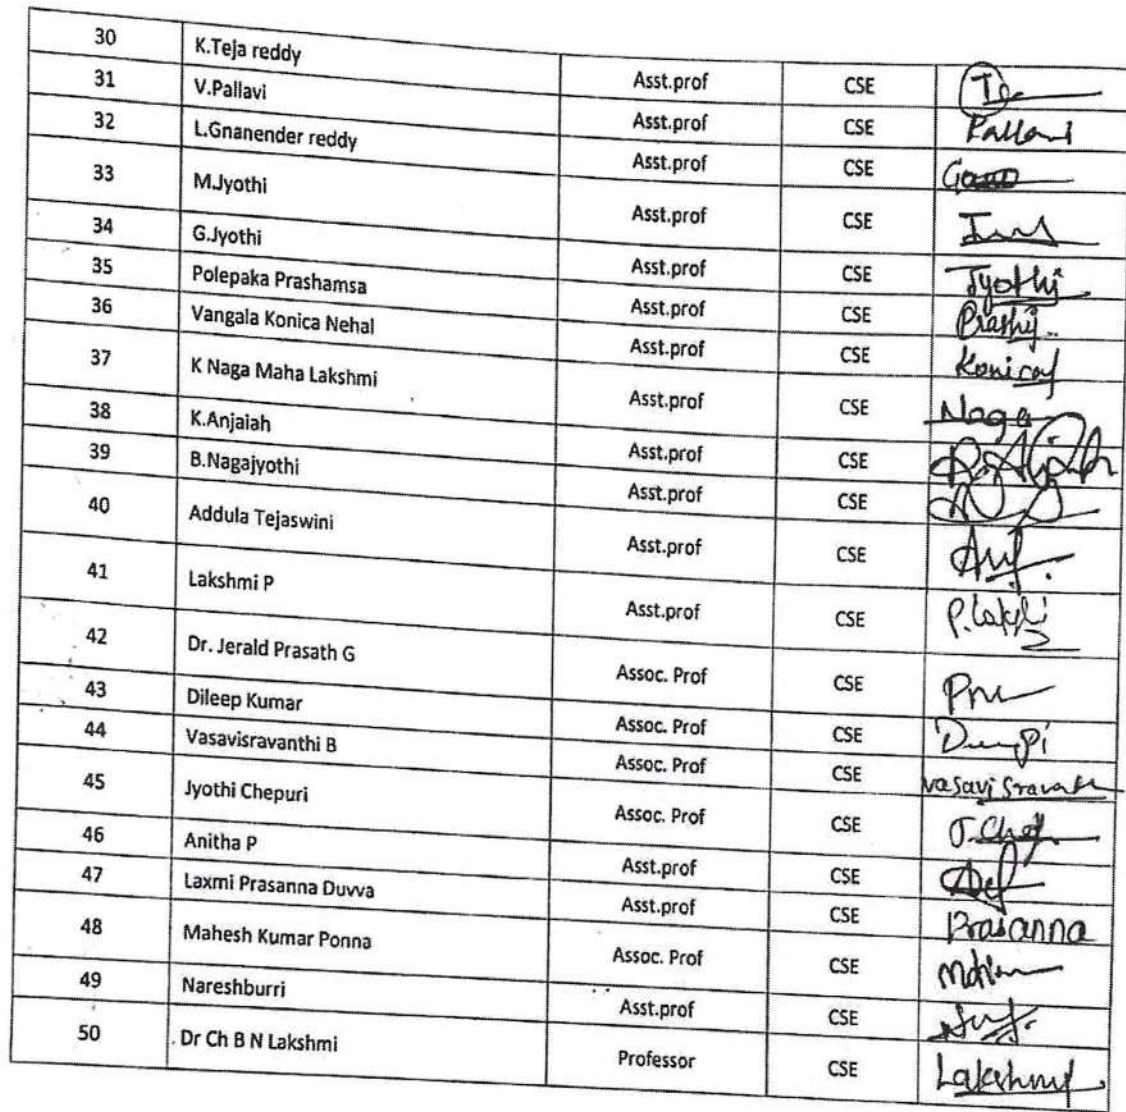 30 K.Teja reddy Asst.prof CSE
31 V.Pallavi Asst.prof CSE Pallavi
32 L.Gnanender reddy Asst.prof CSE
33 M.Jyothi Asst.prof CSE
34 G.Jyothi Asst.prof CSE Jyothi
35 Polepaka Prashamsa Asst.prof CSE
36 Vangala Konica Nehal Asst.prof CSE
37 K Naga Maha Lakshmi Asst.prof CSE Naga
38 K.Anjaiah Asst.prof CSE
39 B.Nagajyothi Asst.prof CSE
40 Addula Tejaswini Asst.prof CSE
41 Lakshmi P Asst.prof CSE
42 Dr. Jerald Prasath G Assoc. Prof CSE
43 Dileep Kumar Assoc. Prof CSE
44 Vasavisravanthi B Assoc. Prof CSE
45 Jyothi Chepuri Assoc. Prof CSE
46 Anitha P Asst.prof CSE
47 Laxmi Prasanna Duvva Asst.prof CSE Prasanna
48 Mahesh Kumar Ponna Assoc. Prof CSE
49 Nareshburri Asst.prof CSE
50 Dr Ch B N Lakshmi Professor CSE